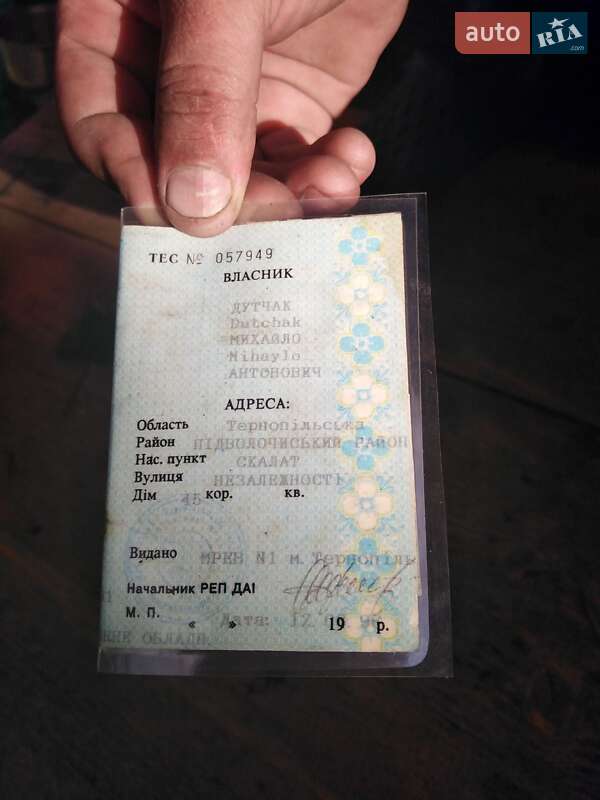 auto RIA .com
ТЕС № 057949
ВЛАСНИК
ДУТЧАК
Dutchak
МИХАЙЛО
Mihaylo
АНТОНОВИЧ
АДРЕСА:
Область Тернопільська
Район ПІДВОЛОЧИСЬКИЙ РАЙОН
Нас. пункт СКАЛАТ
Вулиця НЕЗАЛЕЖНОСТІ
Дім 45 кор. кв.
Видано МРЕВ №1 м.Тернопіль
Начальник РЕП ДАІ
М. П.
« » Дата: 19 р.